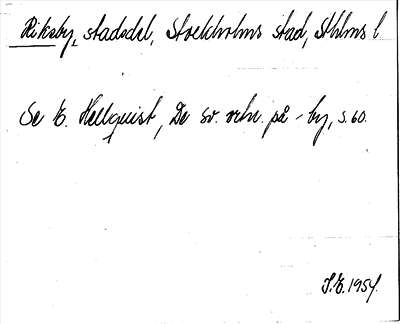 Riksby, stadsdel, Stockholms stad, Sthlms l.
Se E. Hellquist, De sv. ortn. på -by, s. 60.
J.E. 1954.